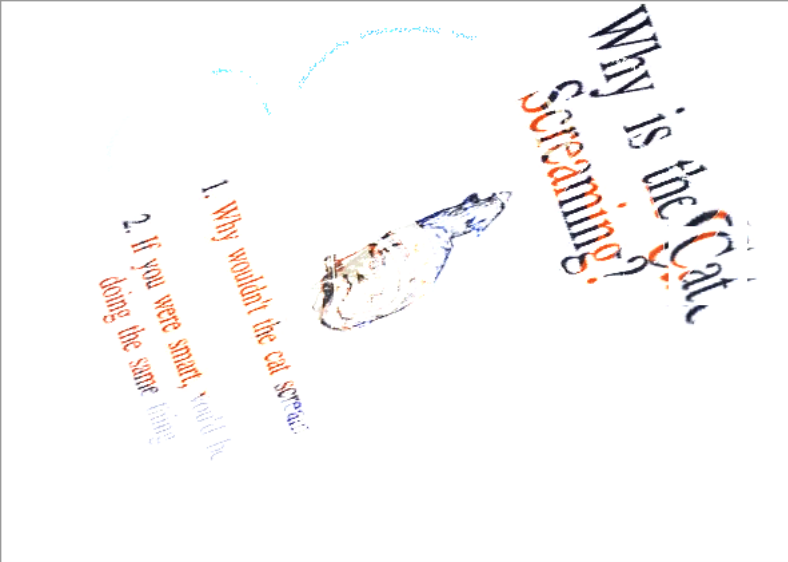 Why is the Cat
Screaming?
1. Why wouldn't the cat scream
2. If you were smart, you'd be
doing the same thing